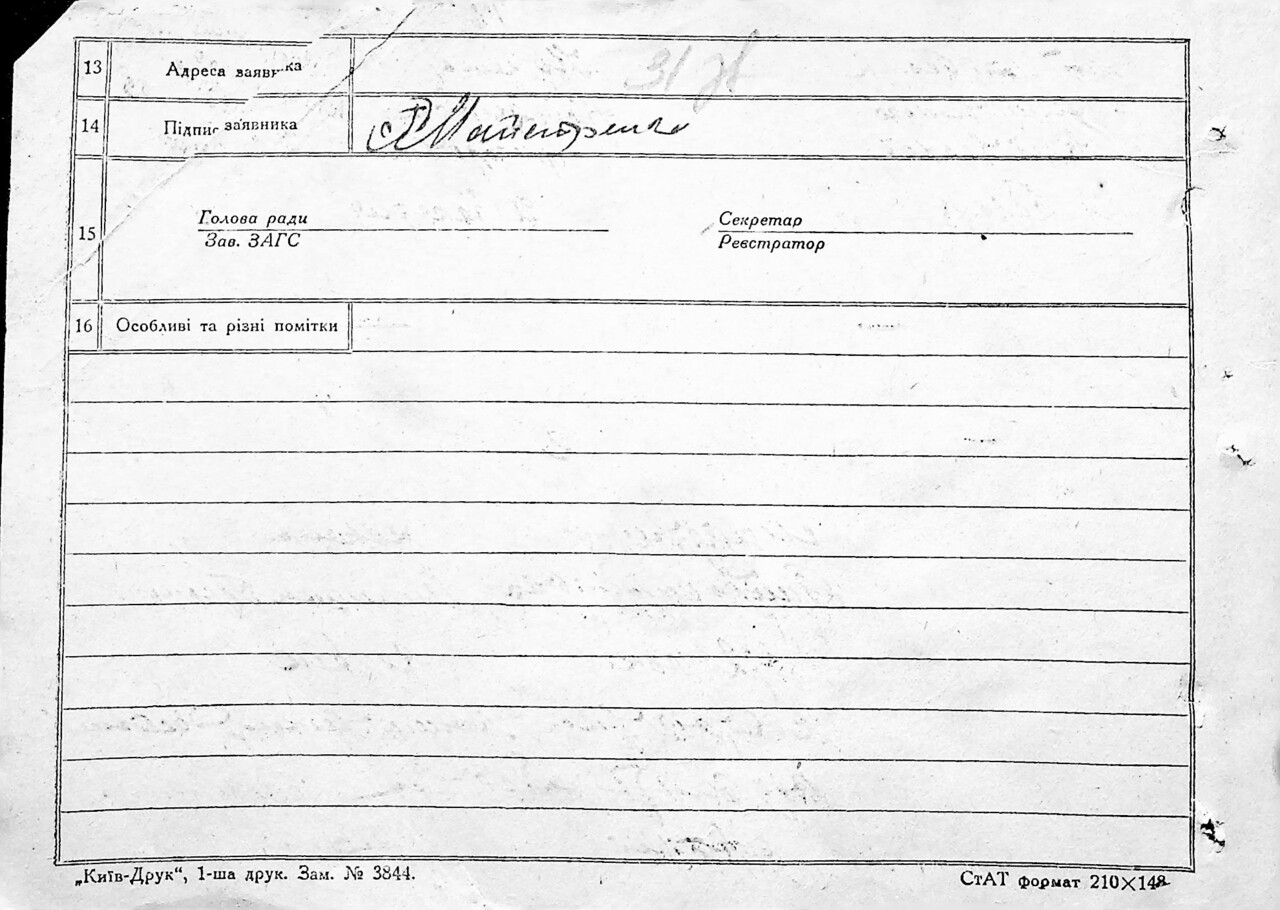 13 Адреса заявника
14 Підпис заявника Майстренко
15
Голова ради
Зав. ЗАГС
Секретар
Реєстратор
16 Особливі та різні помітки
„Київ-Друк“, 1-ша друк. Зам. № 3844.
СтАТ формат 210×148